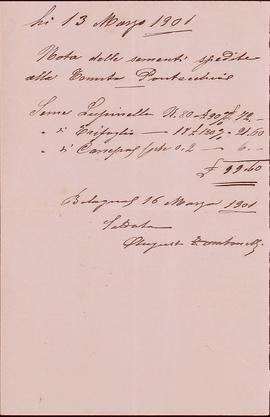 li 13 Marzo 1901
Nota delle sementi spedite
alla Tenuta Pontecchio
Seme Lupinella N. 80 - £ 90 % £ 72 -
" di Trifoglio — 18 £ 120 % " 21.60
" di 0.2 " 6. -
£ 99.60
Bologna 16 Marzo 1901
Saldata
Augusto